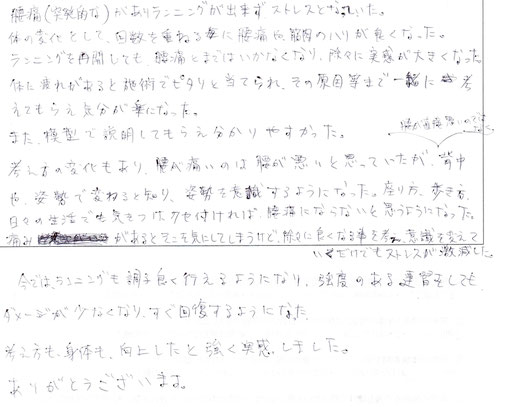 腰痛(突発的な)がありランニングが出来ず、ストレスとなっていた。
体の変化として、回数を重ねる毎に腰痛や筋肉のハリが良くなった。
ランニングを再開しても、腰痛とまではいかなくなり、除々に実感が大きくなった。
体に疲れがあると施術でピタリと当てられ、その原因等まで一緒に考
えてもらえ気分が楽になった。
また、模型で説明してもらえ分かりやすかった。
腰が直接悪いのでは
考え方の変化もあり、腰が痛いのは腰が悪いと思っていたが、背中
や、姿勢で変わると知り、姿勢を意識するようになった。座り方、歩き方、
日々の生活でも気をつけるクセ付ければ、腰痛にならないと思うようになった。
痛みがあるとそこを気にしてしまうけど、除々に良くなる事を考え、意識を変えて
いくだけでもストレスが激減した。
今では、ランニングも調子良く行えるようになり、強度のある練習をしても、
ダメージが少なくなり、すぐ回復するようになった
考え方も、身体も、向上したと強く実感しました。
ありがとうございます。